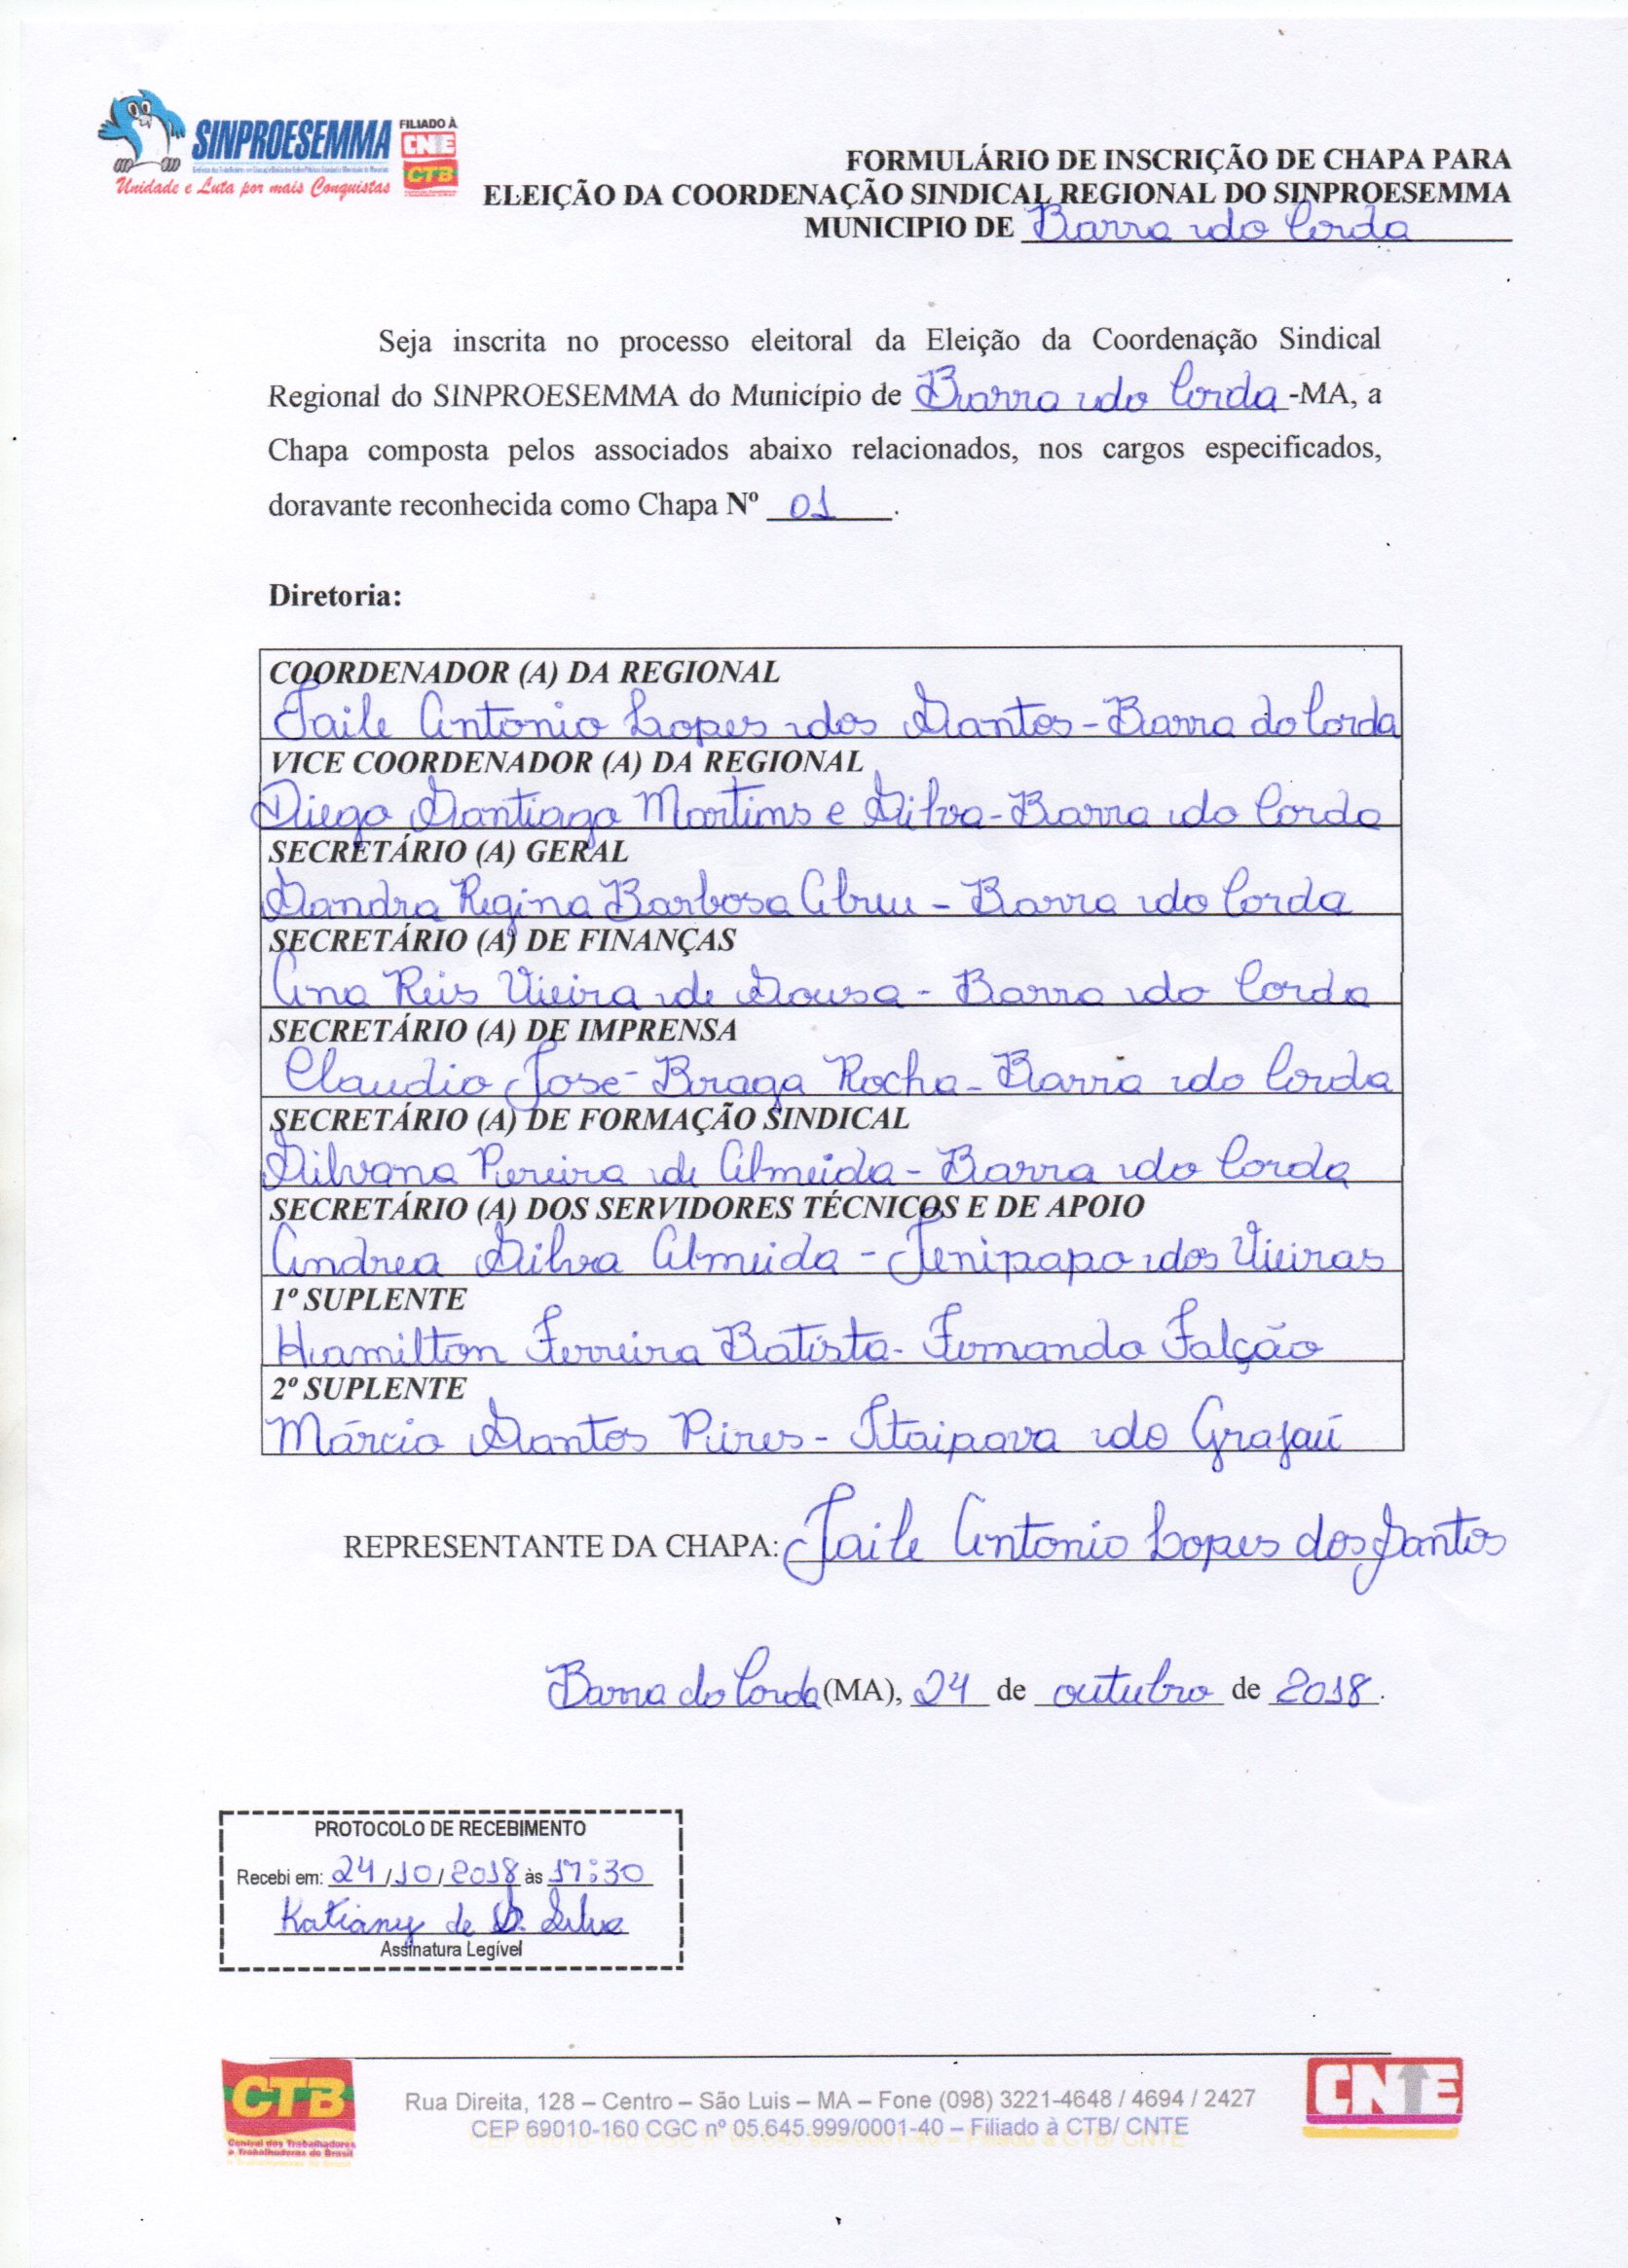 SINPROESEMMA
FILIADO À
CNTE
CTB
Unidade e Luta por mais Conquistas
FORMULÁRIO DE INSCRIÇÃO DE CHAPA PARA
ELEIÇÃO DA COORDENAÇÃO SINDICAL REGIONAL DO SINPROESEMMA
MUNICIPIO DE Barra do Corda
Seja inscrita no processo eleitoral da Eleição da Coordenação Sindical
Regional do SINPROESEMMA do Município de Barra do Corda-MA, a
Chapa composta pelos associados abaixo relacionados, nos cargos especificados,
doravante reconhecida como Chapa Nº 01.
Diretoria:
COORDENADOR (A) DA REGIONAL
Jaile Antonio Lopes dos Santos-Barra do Corda
VICE COORDENADOR (A) DA REGIONAL
Diego Santiago Martins e Silva-Barra do Corda
SECRETÁRIO (A) GERAL
Sandra Regina Barbosa Abreu - Barra do Corda
SECRETÁRIO (A) DE FINANÇAS
Ana Reis Vieira de Sousa - Barra do Corda
SECRETÁRIO (A) DE IMPRENSA
Claudio José Braga Rocha - Barra do Corda
SECRETÁRIO (A) DE FORMAÇÃO SINDICAL
Silvana Pereira de Almeida - Barra do Corda
SECRETÁRIO (A) DOS SERVIDORES TÉCNICOS E DE APOIO
Andrea Silva Almeida - Jenipapo dos Vieiras
1º SUPLENTE
Hamilton Ferreira Batista - Fernando Falção
2º SUPLENTE
Márcio Santos Pires - Itaipava do Grajaú
REPRESENTANTE DA CHAPA: Jaile Antonio Lopes dos Santos
Barra do Corda (MA), 24 de outubro de 2018.
PROTOCOLO DE RECEBIMENTO
Recebi em: 24/10/2018 às 17:30
Katiany de S. Silva
Assinatura Legível
CTB
Central dos Trabalhadores
e Trabalhadoras do Brasil
Rua Direita, 128 – Centro – São Luis – MA – Fone (098) 3221-4648 / 4694 / 2427
CEP 69010-160 CGC nº 05.645.999/0001-40 – Filiado à CTB/ CNTE
CNTE